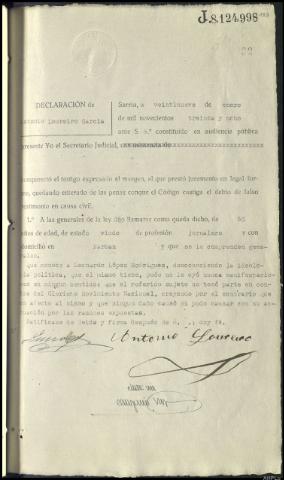 J.8.124.998
DECLARACIÓN de
Antonio Loureiro Garcia
Sarria, a veintinueve de enero
de mil novecientos treinta y ocho
ante S. S.ª constituido en audiencia pública
presente Yo el Secretario Judicial,
Compareció el testigo expresado al margen, el que prestó juramento en legal for-
ma, quedando enterado de las penas conque el Código castiga el delito de falso
testimonio en causa civil.
1.º A las generales de la ley dijo llamarse como queda dicho, de
años de edad, de estado viudo de profesión jornalero y con
domicilio en Barban y que no le comprenden gene-
rales.
Que conoce a Leonardo López Rodríguez, desconociendo la ideolo-
gía política, que el mismo tiene, pués no le oyó nunca manifestacio-
nes en ningún sentido; que el referido sujeto no tomó parte en con-
tra del Glorioso Movimiento Nacional, creyendo por el contrario que
es afecto al mismo y que ningún daño causó ni pudo causar con su ac-
tuación por las razones expuestas.
Ratificase de leída y firma después de S. S.ª; doy fé.
Antonio Loureiro
ante mi